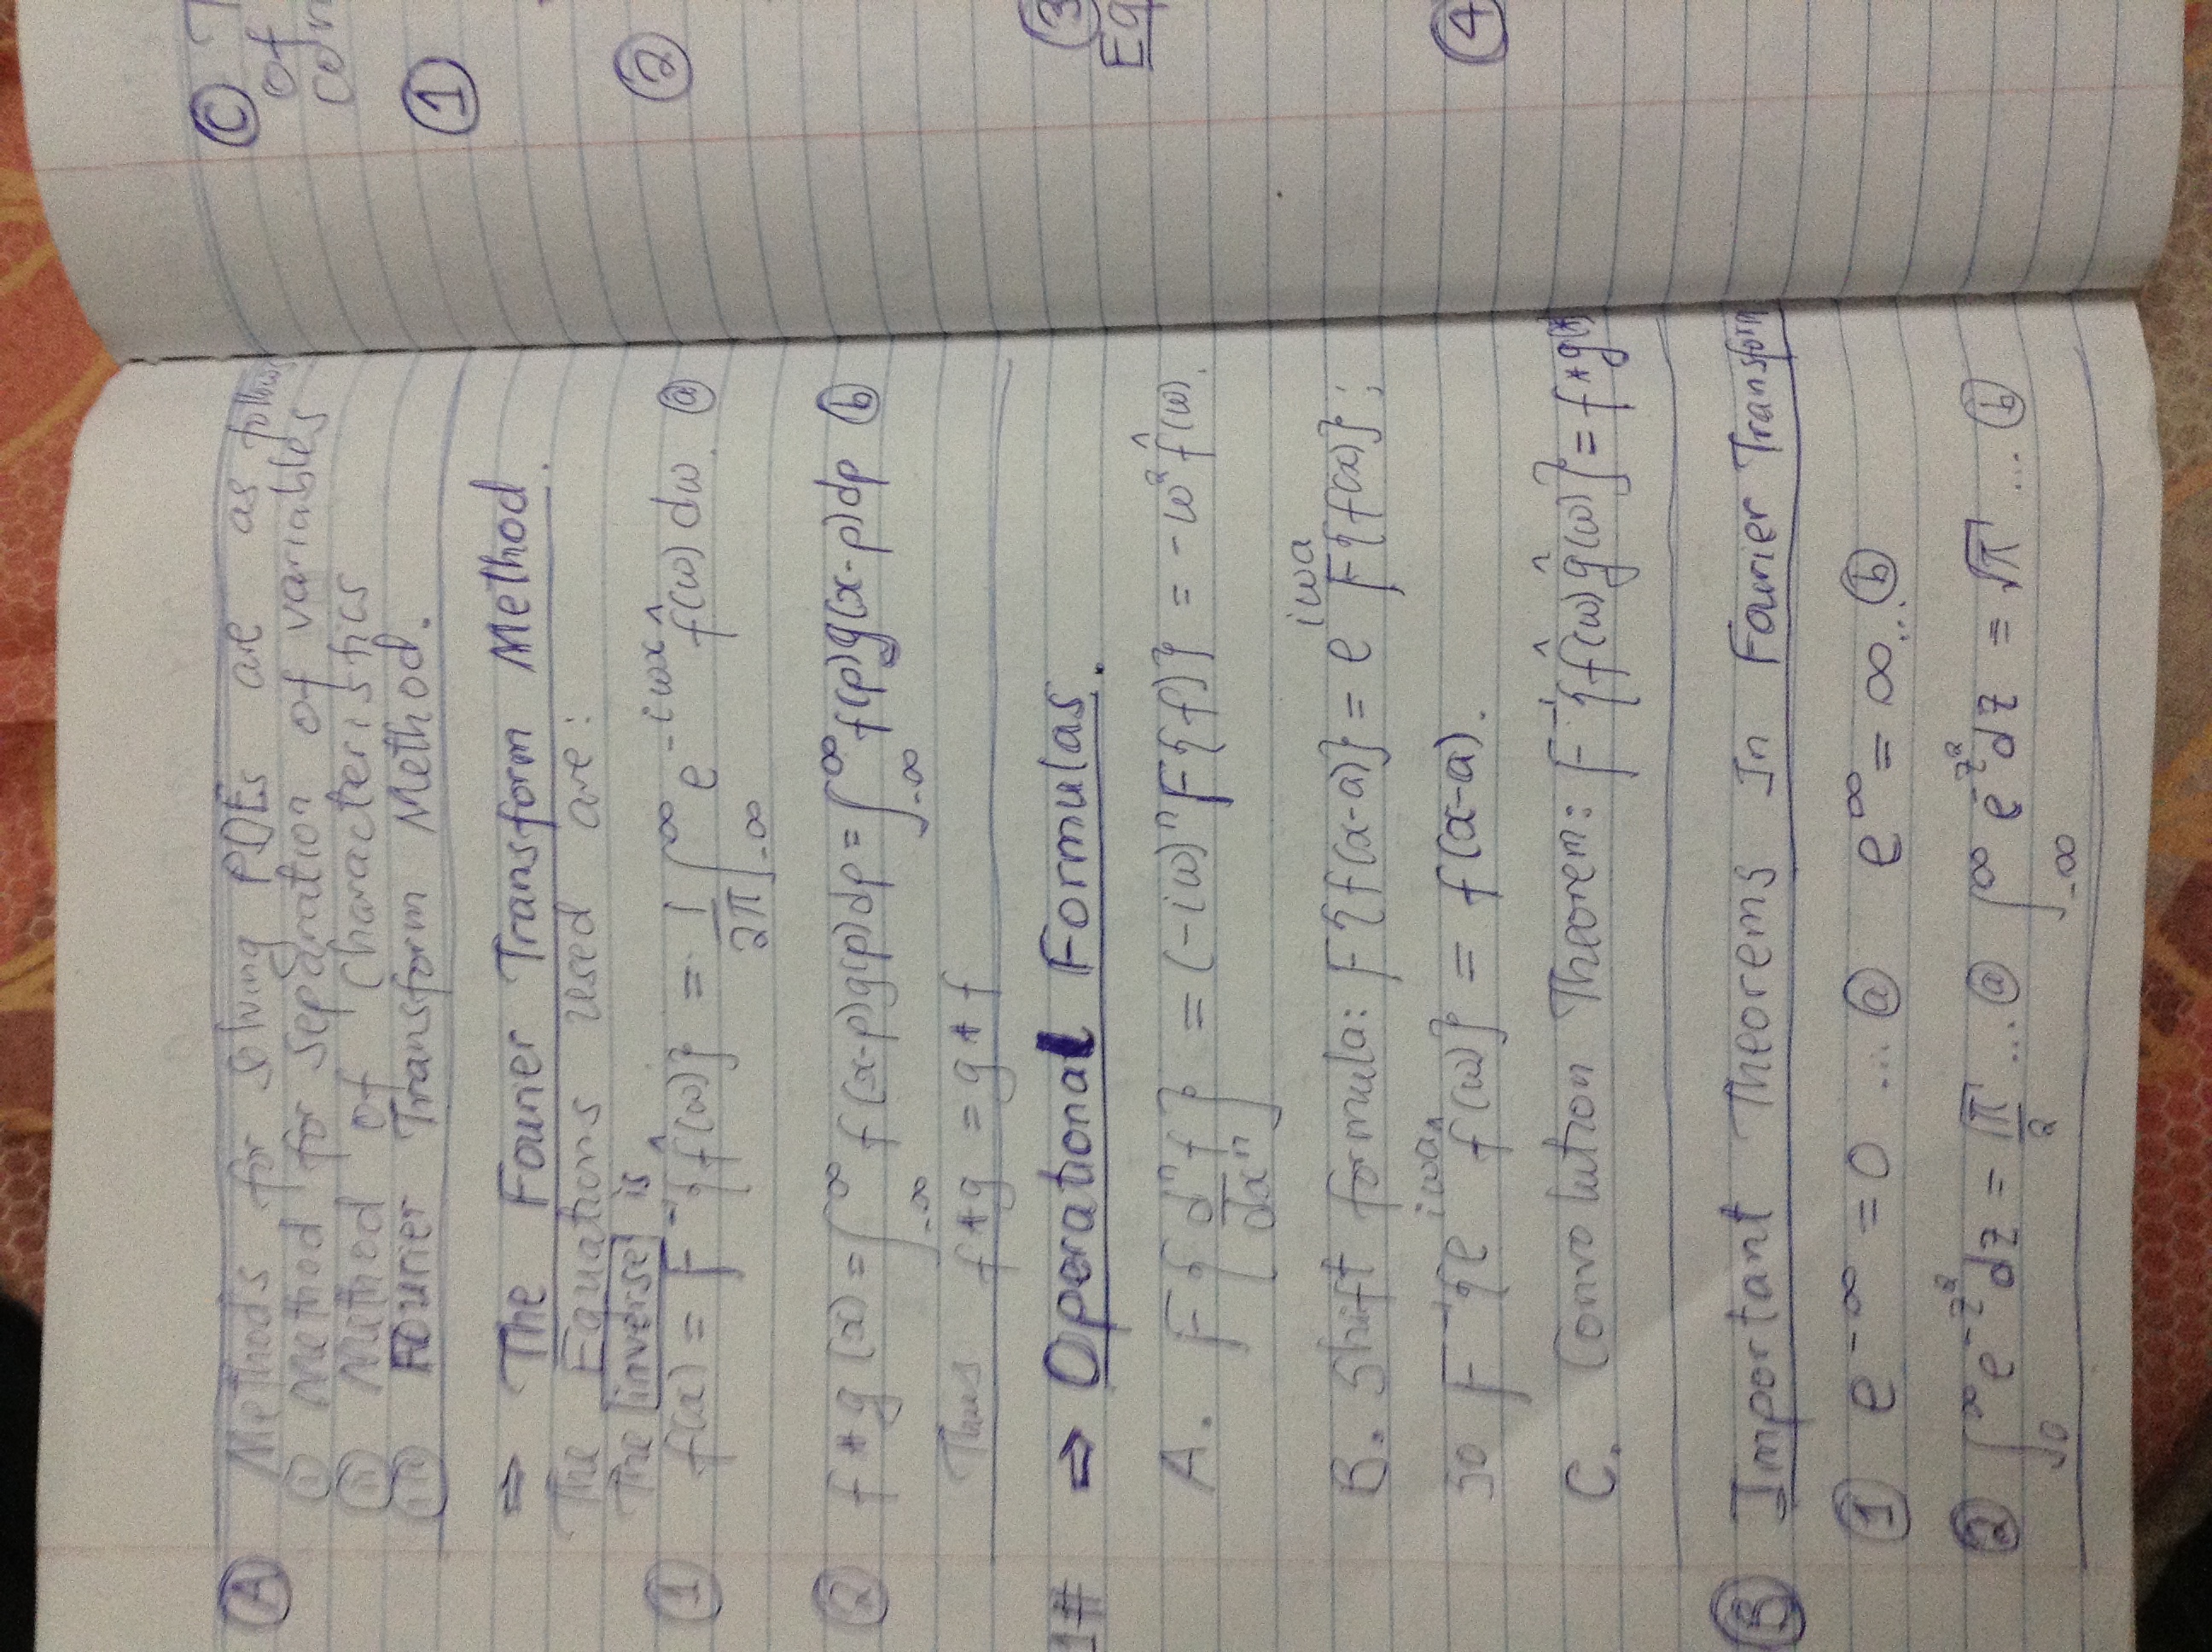 Ⓐ Methods for solving PDEs are as follows
ⓘ Method for separation of variables
ⓘⓘ Method of Characteristics
ⓘⓘⓘ Fourier Transform Method.
⇒ The Fourier Transform Method.
The Equations used are:
The inverse is
① f(x) = F⁻¹{f̂(ω)} = 1/2π ∫_{-∞}^{∞} e^{-iωx} f̂(ω) dω. ⓐ
② f*g(x) = ∫_{-∞}^{∞} f(x-p)g(p)dp = ∫_{-∞}^{∞} f(p)g(x-p)dp ⓑ
Thus f*g = g*f
1# ⇒ Operational Formulas.
A. F{dⁿf/dxⁿ} = (-iω)ⁿ F{f)} = -ω² f̂(ω).
B. Shift formula: F{f(x-a)} = e^{iωa} F{f(x)};
so F⁻¹{e^{iωa} f̂(ω)} = f(x-a).
C. Convolution Theorem: F⁻¹{f̂(ω)ĝ(ω)} = f*g(x)
Ⓑ Important Theorems In Fourier Transform
① e^{-∞} = 0 ... ⓐ e^{∞} = ∞ ... ⓑ
② ∫_{0}^{∞} e^{-z²} dz = √π/2 ... ⓐ ∫_{-∞}^{∞} e^{-z²} dz = √π ... ⓑ
Ⓒ
of
①
②
③
Eq
④